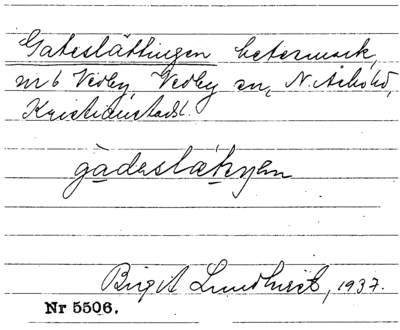 Gateslättingen betesmark,
nr 6 Vedby, Vedby sn, N. Åsbo hd,
Kristianstads l.
gàdeslætɩŋen
Birgit Lundhurst, 1937.
Nr 5506.